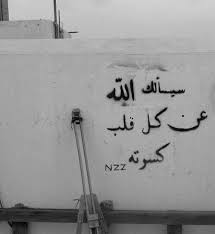 سيسألك الله
عن كل قلب
كسوته
NZZ